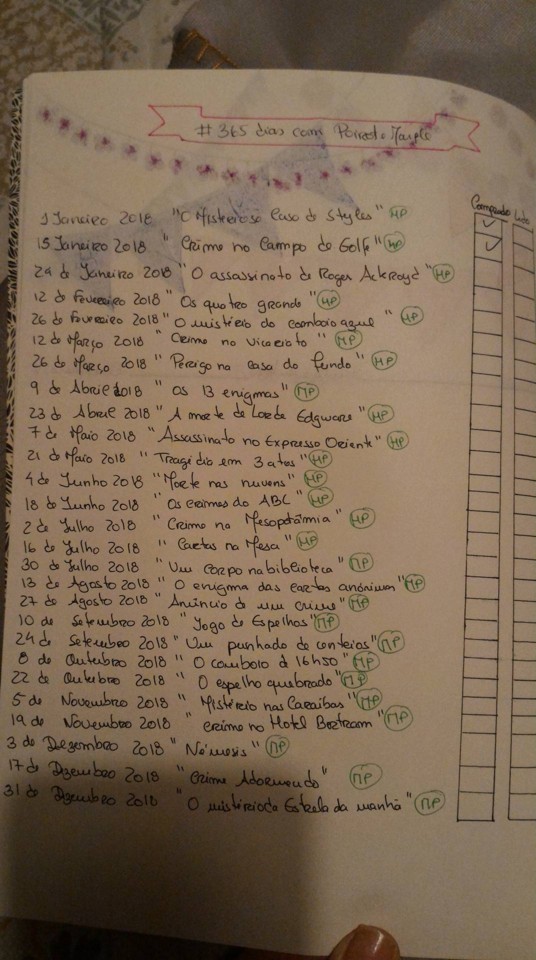 # 365 dias com Poirot e Marple
Comprado Lido
1 Janeiro 2018 "O Misterioso Caso de Styles" HP
15 Janeiro 2018 "Crime no Campo de Golfe" HP
29 de Janeiro 2018 "O assassinato de Roger Ackroyd" HP
12 de Fevereiro 2018 "Os quatro grande" HP
26 de Fevereiro 2018 "O mistério do comboio azul" HP
12 de Março 2018 "Crime no vicariato" MP
26 de Março 2018 "Perigo na Casa do fundo" HP
9 de Abril 2018 "Os 13 enigmas" MP
23 de Abril 2018 "A morte de Lorde Edgware" HP
7 de Maio 2018 "Assassinato no Expresso Oriente" HP
21 de Maio 2018 "Tragédia em 3 atos" HP
4 de Junho 2018 "Morte nas nuvens" HP
18 de Junho 2018 "Os crimes do ABC" HP
2 de Julho 2018 "Crime na Mesopotâmia" HP
16 de Julho 2018 "Cartas na Mesa" HP
30 de Julho 2018 "Um corpo na biblioteca" MP
13 de Agosto 2018 "O enigma das cartas anónimas" MP
27 de Agosto 2018 "Anúncio de um crime" MP
10 de Setembro 2018 "Jogo de Espelhos" MP
24 de Setembro 2018 "Um punhado de centeios" MP
8 de Outubro 2018 "O comboio d 16h50" MP
22 de Outubro 2018 "O espelho quebrado" MP
5 de Novembro 2018 "Mistério nas Caraíbas" MP
19 de Novembro 2018 "crime no Hotel Bertram" MP
3 de Dezembro 2018 "Némesis" MP
17 de Dezembro 2018 "Crime Adormecido" MP
31 de Dezembro 2018 "O mistério da Estrela da manhã" MP